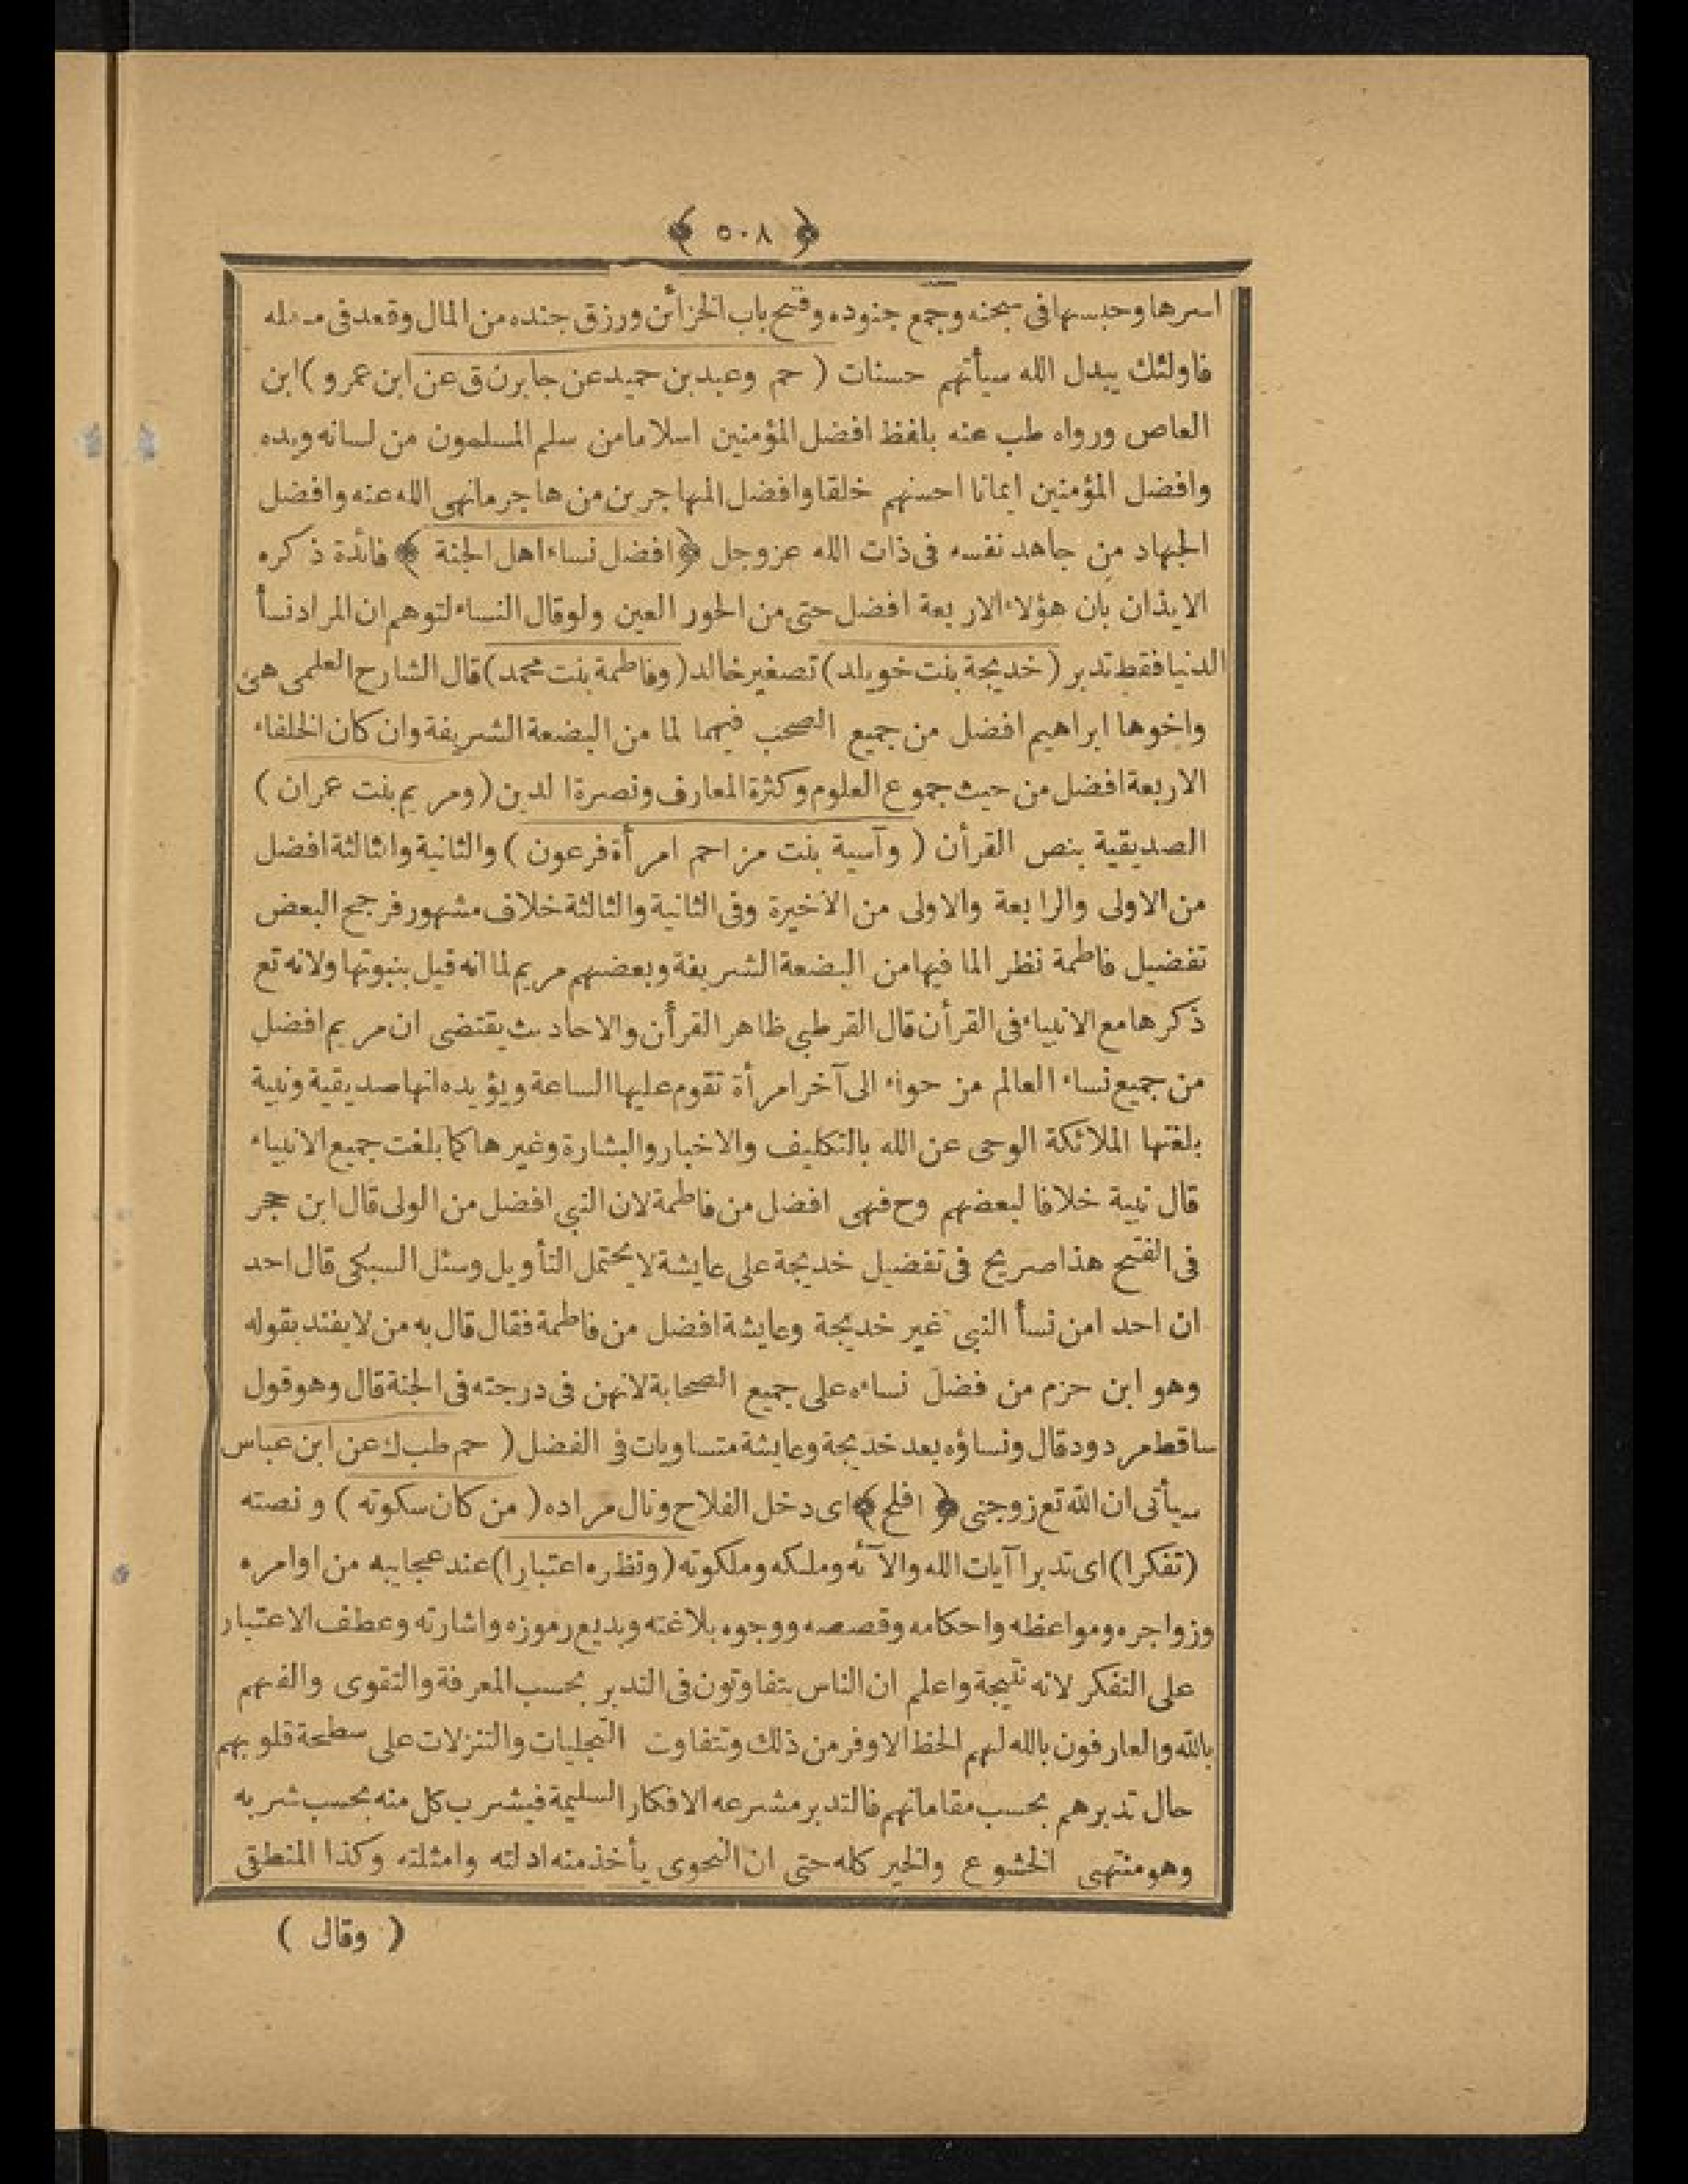 ﴿ ٥٠٨ ﴾
اسرها وحبسها فى سجنه وجمع جنوده وفتح باب الخزائن ورزق جنده من المال وقعد فى
فاولئك يبدل الله سيأتهم حسنات ( حم وعبد بن حميد عن جابر ن ق عن ابن عمرو ) ابن
العاص ورواه طب عنه بلفظ افضل المؤمنين اسلاما من سلم المسلمون من لسانه ويده
وافضل المؤمنين ايمانا احسنهم خلقا وافضل المهاجرين من هاجر مانهى الله عنه وافضل
الجهاد من جاهد نفسه فى ذات الله عز وجل ﴿ افضل نساء اهل الجنة ﴾ فائدة ذكره
الايذان بان هؤلاء الاربعة افضل حتى من الحور العين ولوقال النساء لتوهم ان المراد نسأ
الدنيا فقط تدبر ( خديجة بنت خويلد ) تصغير خالد ( وفاطمة بنت محمد ) قال الشارح العلمى هى
واخوها ابراهيم افضل من جميع الصحب فيهما لما من البضعة الشريفة وان كان الخلفاء
الاربعة افضل من حيث جموع العلوم وكثرة المعارف ونصرة الدين ( ومريم بنت عمران )
الصديقية بنص القرأن ( وآسية بنت مزاحم امرأة فرعون ) والثانية والثالثة افضل
من الاولى والرابعة والاولى من الاخيرة وفى الثانية والثالثة خلاف مشهور فرجح البعض
تفضيل فاطمة نظر الما فيها من البضعة الشريفة وبعضهم مريم لما انه قيل بنبوتها ولانه تع
ذكرها مع الانبياء فى القرأن قال القرطبي ظاهر القرأن والاحاديث يقتضى ان مريم افضل
من جميع نساء العالم من حواء الى آخر امرأة تقوم عليها الساعة ويؤيده انها صديقية ونبية
بلغتها الملائكة الوحى عن الله بالتكليف والاخبار والبشارة وغيرها كما بلغت جميع الانبياء
قال نبية خلافا لبعضهم وح فهى افضل من فاطمة لان النبى افضل من الولى قال ابن حجر
فى الفتح هذا صريح فى تفضيل خديجة على عايشة لا يحتمل التأويل وسئل السبكى قال احد
ان احد امن نسأ النبى غير خديجة وعايشة افضل من فاطمة فقال قال به من لا يفتد بقوله
وهو ابن حزم من فضل نساءه على جميع الصحابة لانهن فى درجته فى الجنة قال وهو قول
ساقط مردود قال ونساؤه بعد خديجة وعايشة متساويات فى الفضل ( حم طب ك عن ابن عباس
سيأتى ان الله تع زوجنى ﴿ افلح ﴾ اى دخل الفلاح ونال مراده ( من كان سكوته ) ونصته
( تفكرا ) اى تدبرا آيات الله والآئه وملكه وملكوته ( ونظره اعتبارا ) عند عجايبه من اوامره
وزواجره ومواعظه واحكامه وقصصه ووجوه بلاغته وبديع رموزه واشارته وعطف الاعتبار
على التفكر لانه نتيجة واعلم ان الناس يتفاوتون فى التدبر بحسب المعرفة والتقوى والفهم
بالله والعارفون بالله لهم الحظ الاوفر من ذلك وتتفاوت التجليات والتنزلات على سطحة قلوبهم
حال تدبرهم بحسب مقاماتهم فالتدبر مشرعه الافكار السليمة فيشرب كل منه بحسب شربه
وهو منتهى الخشوع والخير كله حتى ان النحوى يأخذ منه ادلته وامثلته وكذا المنطقى
( وقال )